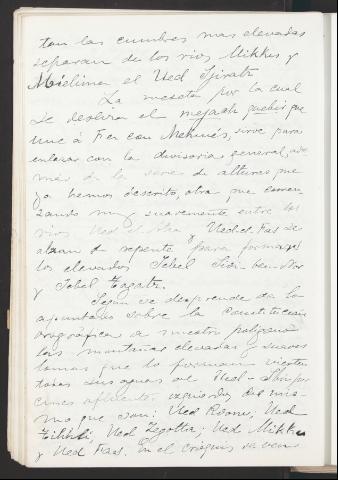 tan las cumbres mas elevadas
separan de los rios Mikkes y
el Ued
La meseta por la cual
se desliza el mejaah quebir que
une á Fez con Mekinés, sirve para
enlazar con la divisoria general, ade
más de la serie de alturas que
ya hemos descrito, otra que comen
zando muy suavemente entre los
rios Ued y Ued el Fas se
alzan de repente para formar
los elevados Jebel
y Jebel
Segun se desprende de lo
apuntado sobre la constitucion
orográfica de nuestro poligono
las montañas elevadas y suaves
lomas que lo forman vierten
todas sus aguas al Ued Sbu por
cinco afluentes izquierdos del mis
mo que son: Ued Ued
Ued Zegotta; Ued Mikkes
y Ued Faas. En el croquis se ven